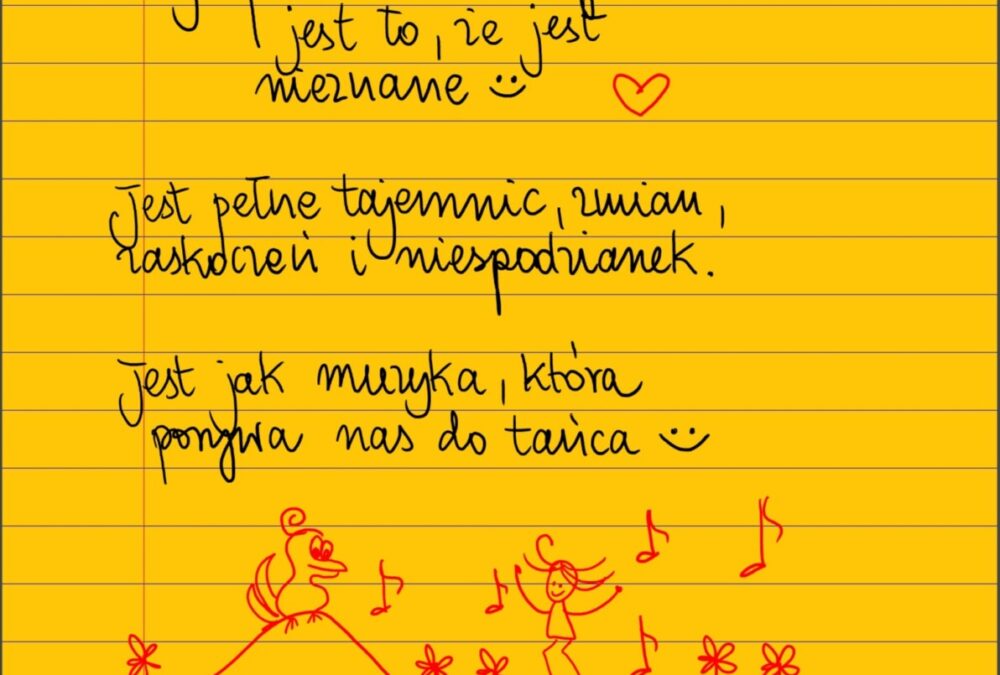 jest to, że jest
nieznane :)
Jest pełne tajemnic, zmian,
zaskoczeń i niespodzianek.
Jest jak muzyka, która
porywa nas do tańca :)